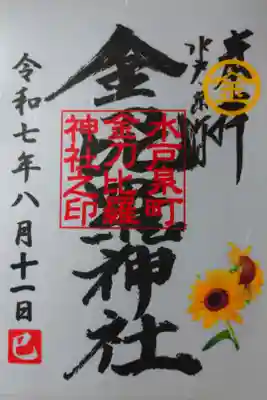 水戸泉町
金刀比羅神社
水戸泉町
金刀比羅
神社之印
令和七年八月十一日
巳